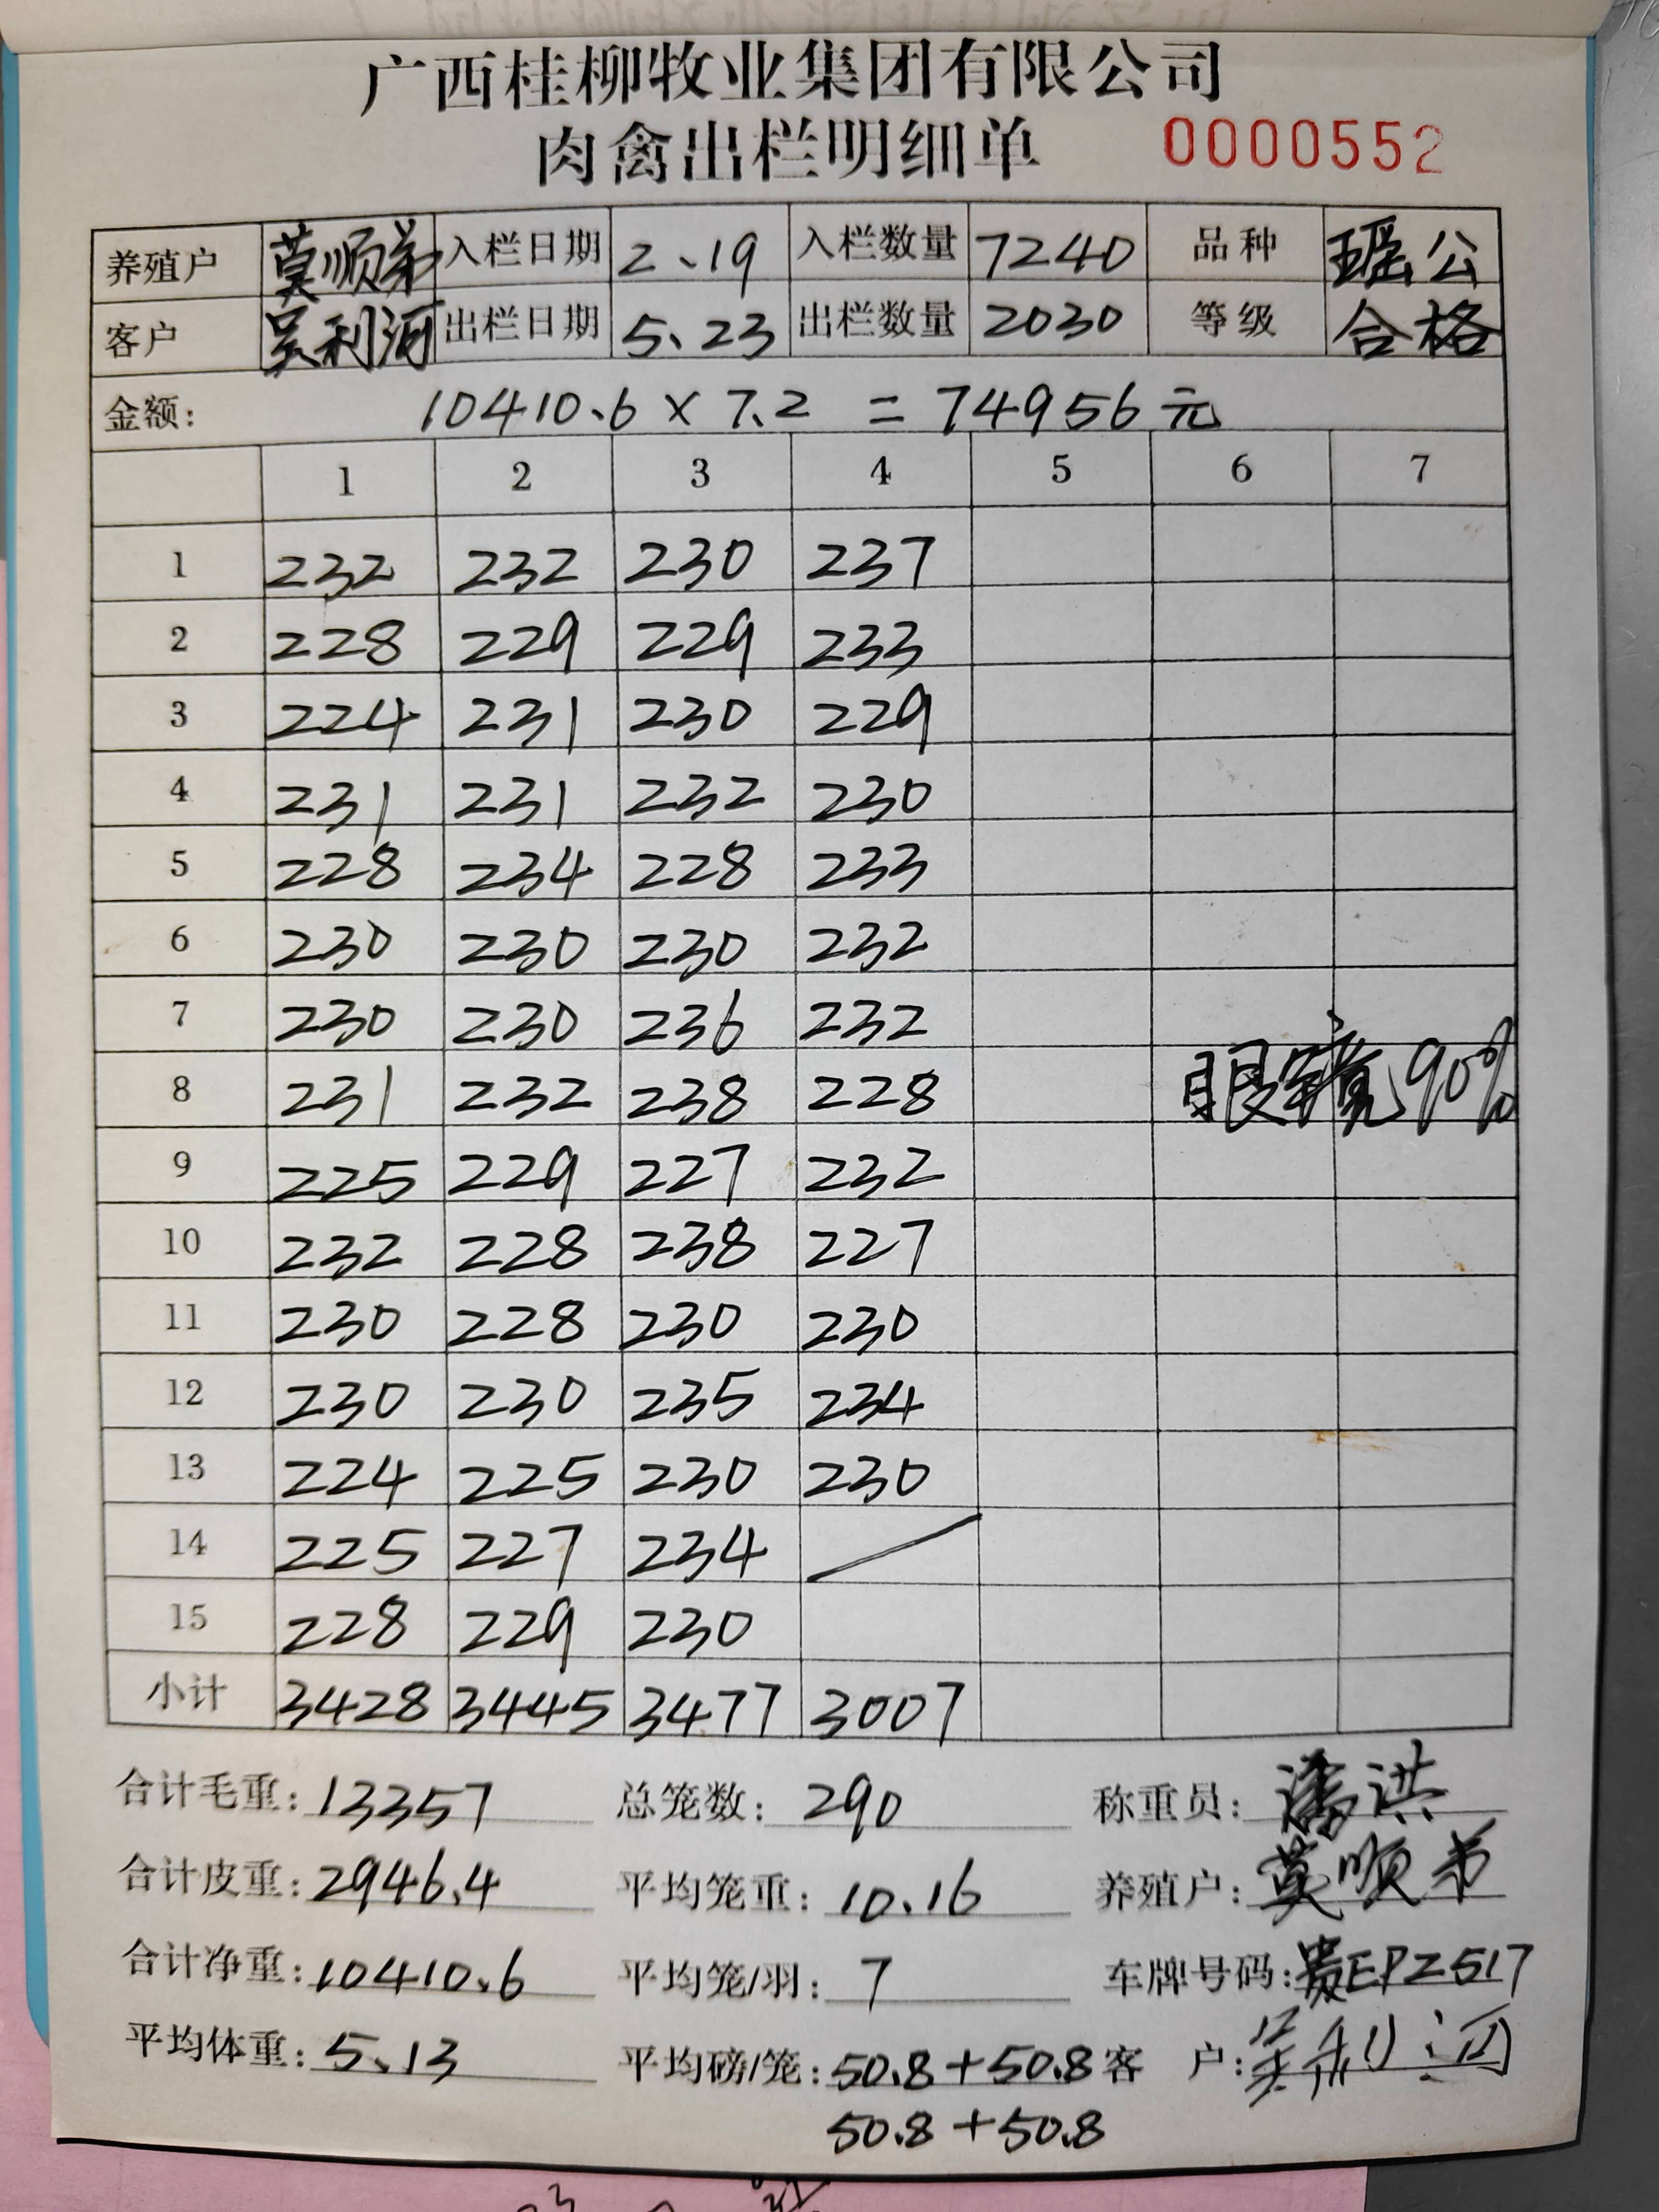 广西桂柳牧业集团有限公司
肉禽出栏明细单 0000552
养殖户 莫顺弟 入栏日期 2、19 入栏数量 7240 品种 瑶公
客户 吴利河 出栏日期 5、23 出栏数量 2030 等级 合格
金额: 10410.6 × 7.2 = 74956 元
1 2 3 4 5 6 7
1 232 232 230 237
2 228 229 229 233
3 224 231 230 229
4 231 231 232 230
5 228 234 228 233
6 230 230 230 232
7 230 230 236 232
8 231 232 238 228 眼镜90%
9 225 229 227 232
10 232 228 238 227
11 230 228 230 230
12 230 230 235 234
13 224 225 230 230
14 225 227 234
15 228 229 230
小计 3428 3445 3477 3007
合计毛重: 13357 总笼数: 290 称重员: 潘洪
合计皮重: 2946.4 平均笼重: 10.16 养殖户: 莫顺弟
合计净重: 10410.6 平均笼/羽: 7 车牌号码: 贵EPZ517
平均体重: 5.13 平均磅/笼: 50.8+50.8 客 户: 吴利河
50.8+50.8